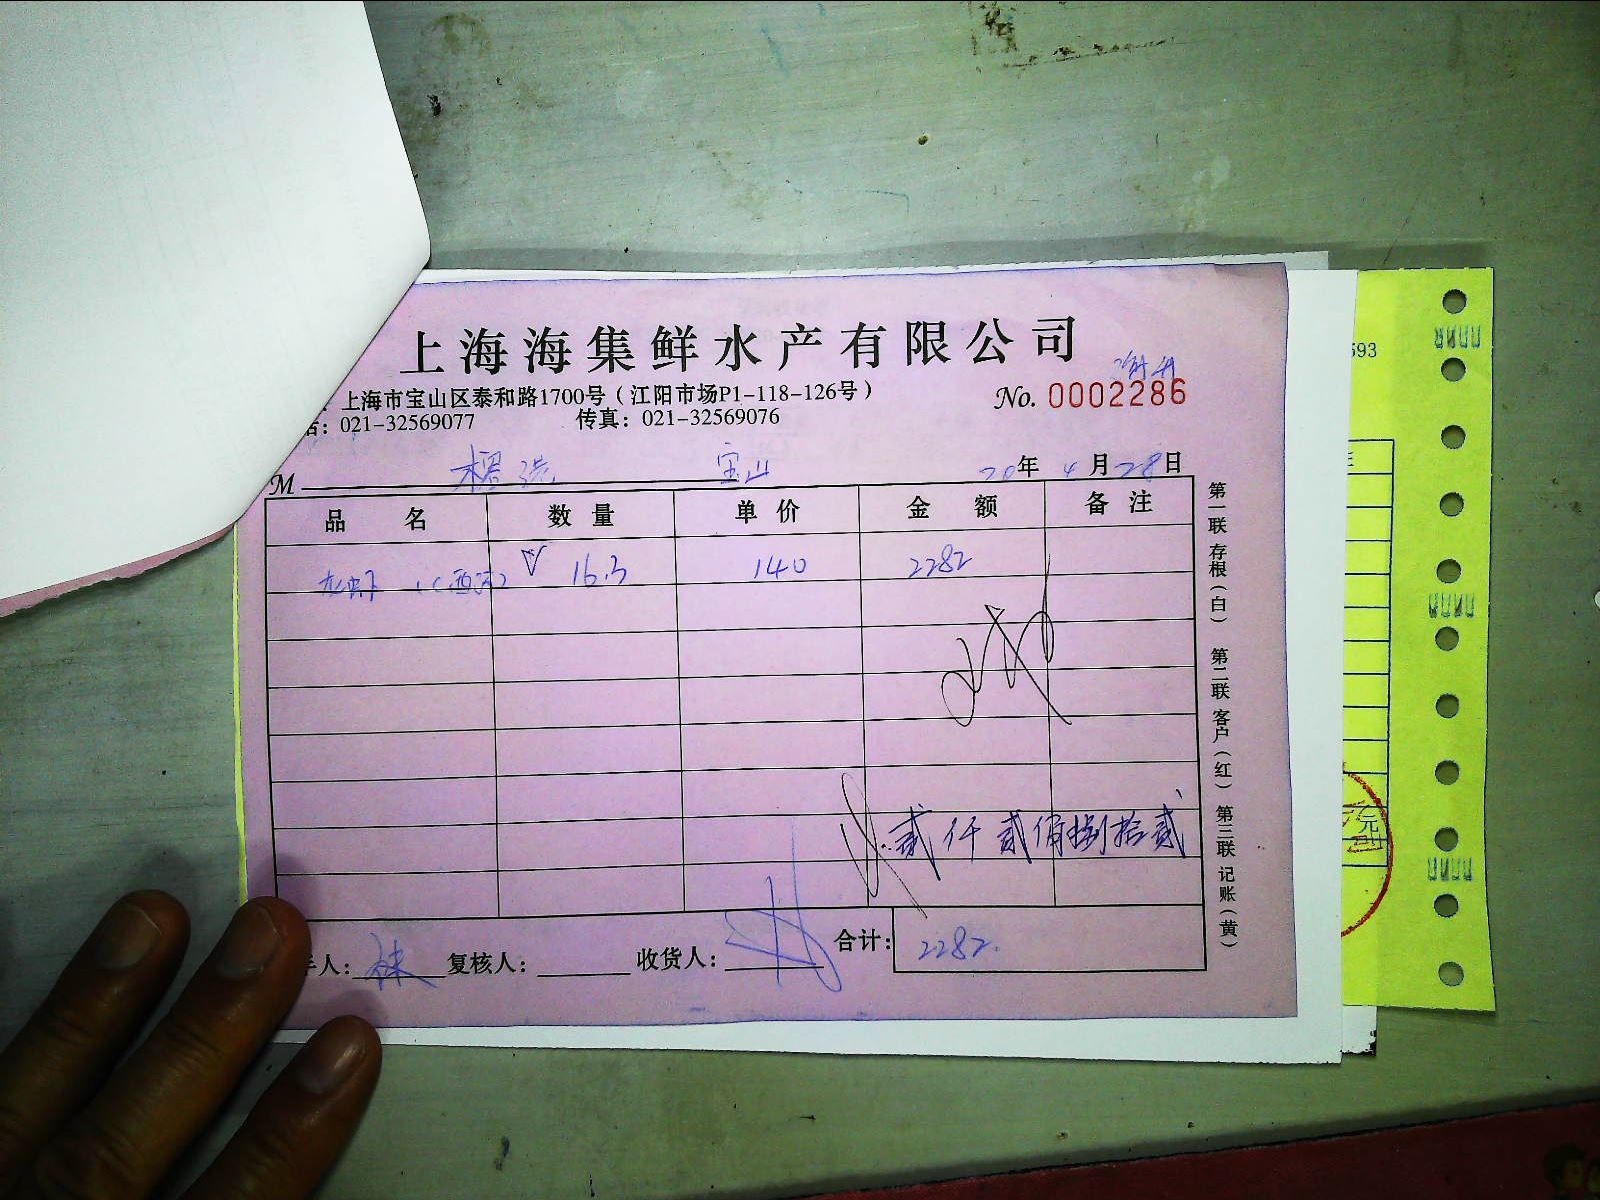 上海海集鲜水产有限公司
上海市宝山区泰和路1700号（江阳市场P1-118-126号）
No. 0002286
话：021-32569077 传真：021-32569076
M 宝山 20年4月28日
品名 数量 单价 金额 备注
16.3 140 2282
贰仟贰佰捌拾贰
手人： 复核人： 收货人： 合计：2282
第一联存根（白） 第二联客户（红） 第三联记账（黄）
593
元